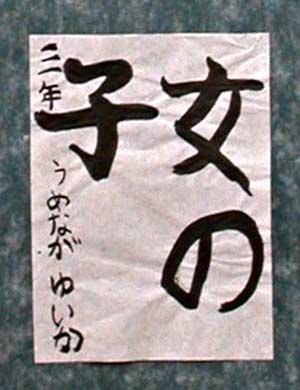 女の
子
三年
うめなが ゆいか